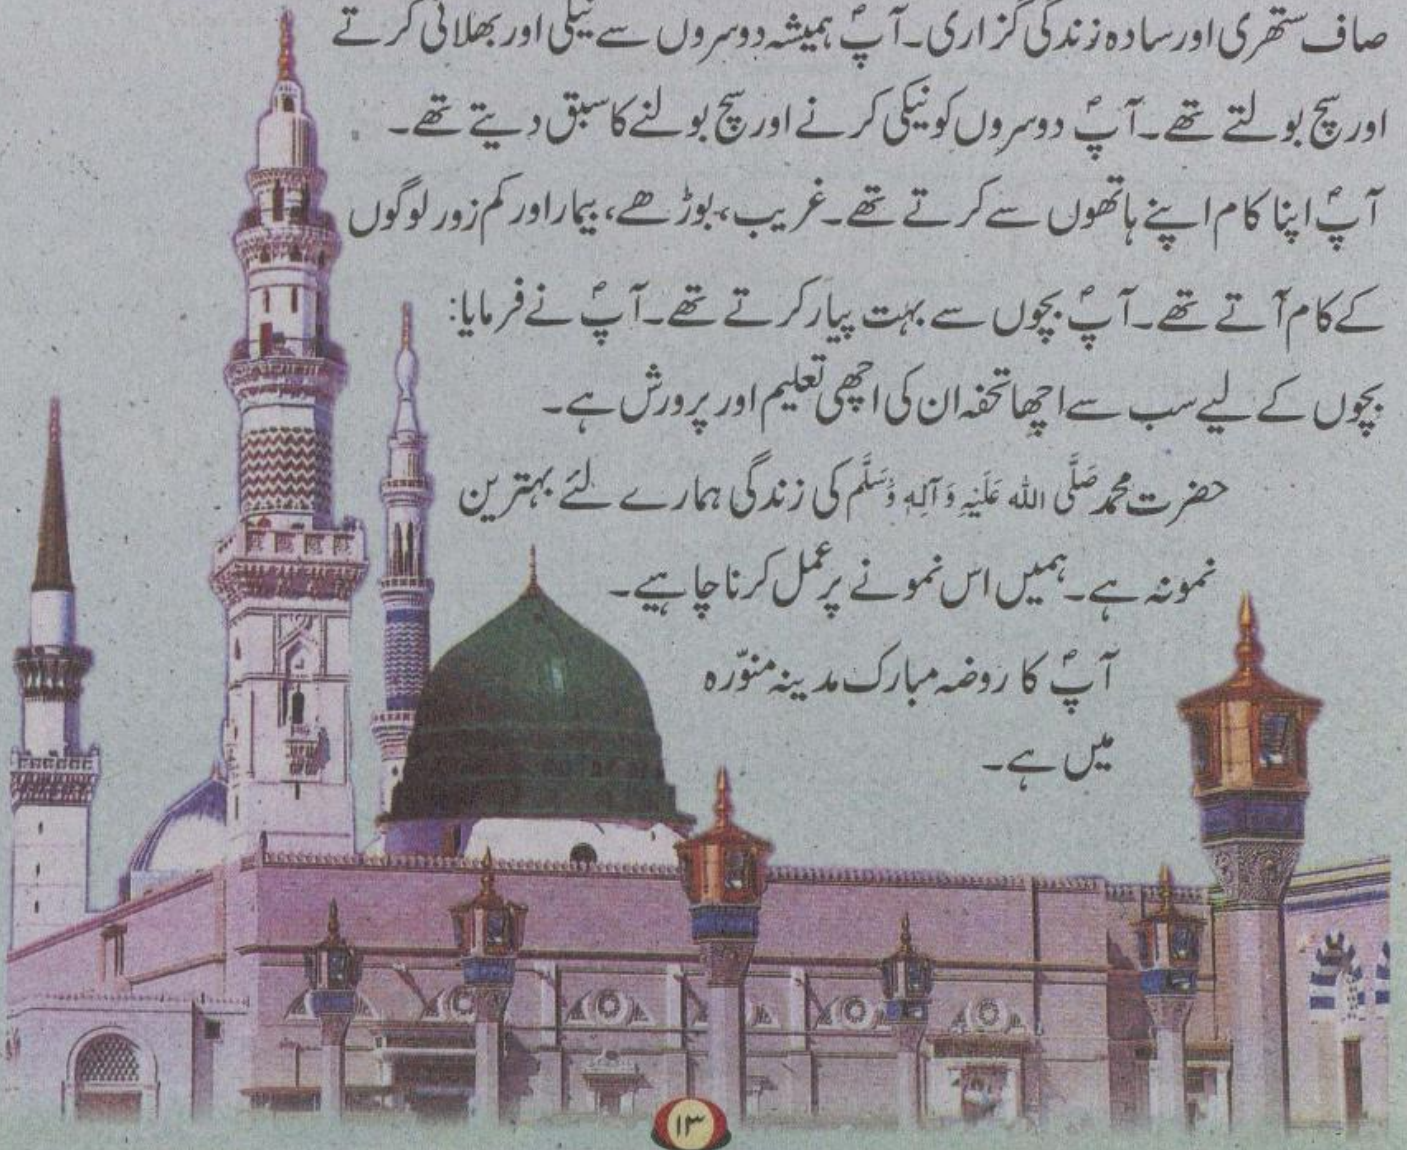 صاف ستھری اور سادہ زندگی گزاری۔ آپؐ ہمیشہ دوسروں سے نیکی اور بھلائی کرتے
اور سچ بولتے تھے۔ آپؐ دوسروں کو نیکی کرنے اور سچ بولنے کا سبق دیتے تھے۔
آپؐ اپنا کام اپنے ہاتھوں سے کرتے تھے۔ غریب، بوڑھے، بیمار اور کم زور لوگوں
کے کام آتے تھے۔ آپؐ بچوں سے بہت پیار کرتے تھے۔ آپؐ نے فرمایا:
بچوں کے لیے سب سے اچھا تحفہ ان کی اچھی تعلیم اور پرورش ہے۔
حضرت محمد صَلَّی اللہ عَلَیْہِ وَآلِہٖ وَسَلَّم کی زندگی ہمارے لئے بہترین
نمونہ ہے۔ ہمیں اس نمونے پر عمل کرنا چاہیے۔
آپؐ کا روضہ مبارک مدینہ منوّرہ
میں ہے۔
۱۳